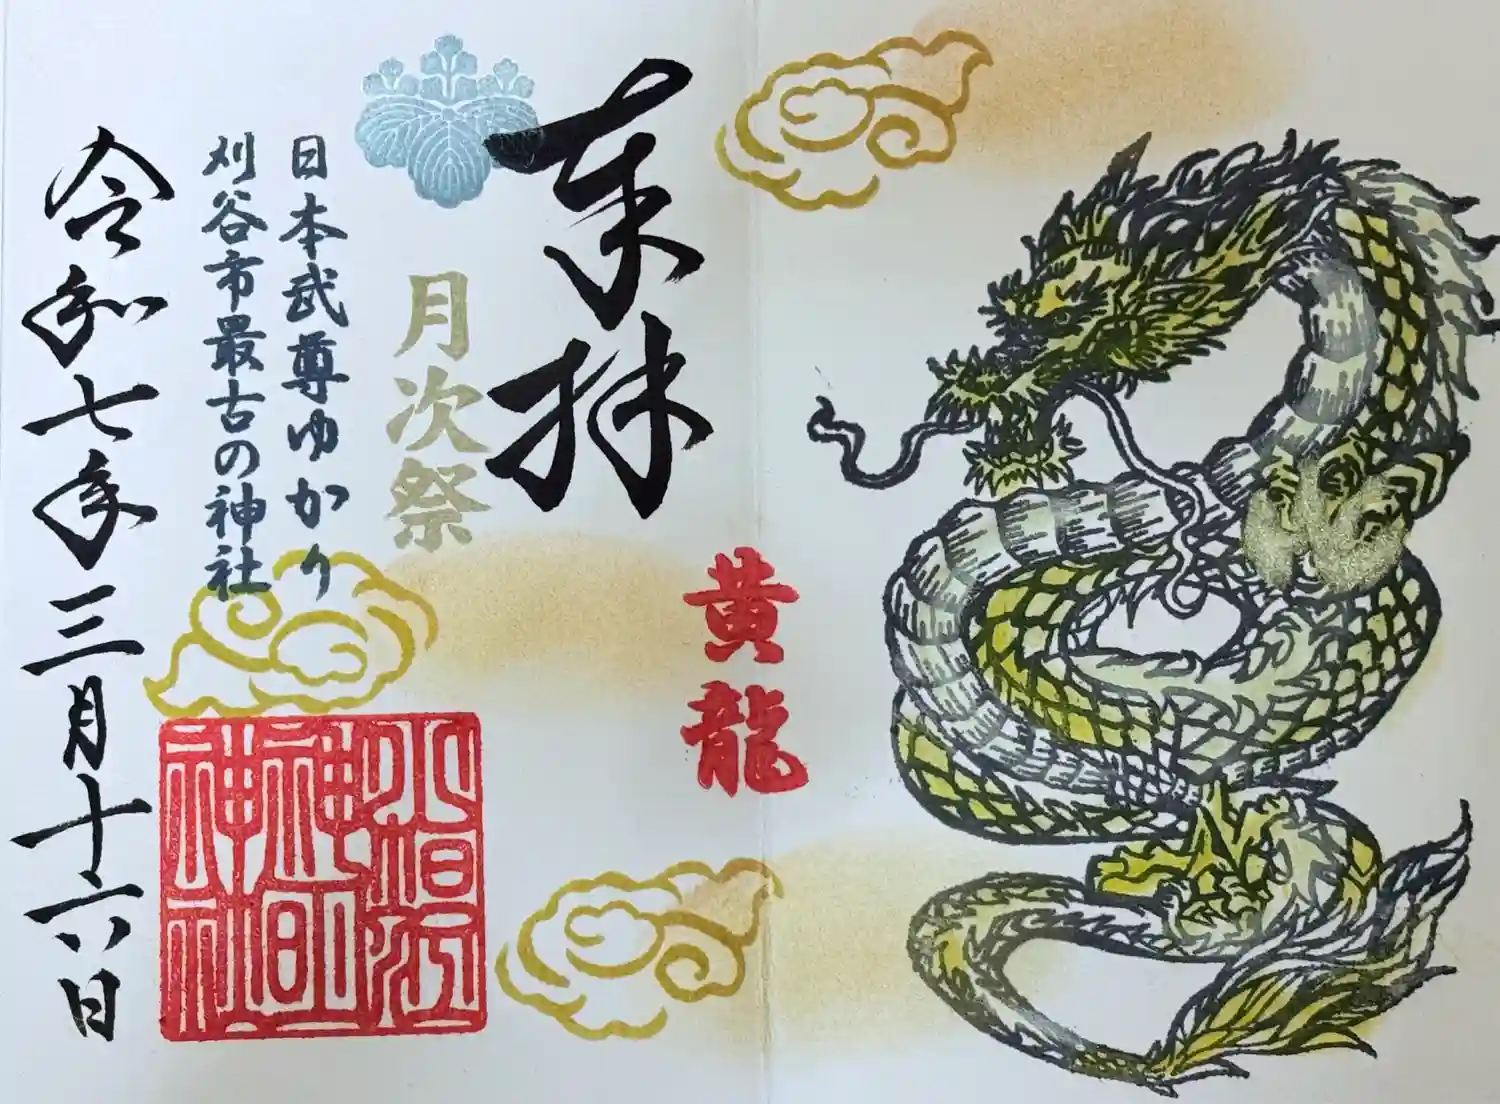 黄龍
奉拝
月次祭
日本武尊ゆかり
刈谷市最古の神社
小垣江
神明
神社
令和七年三月十六日